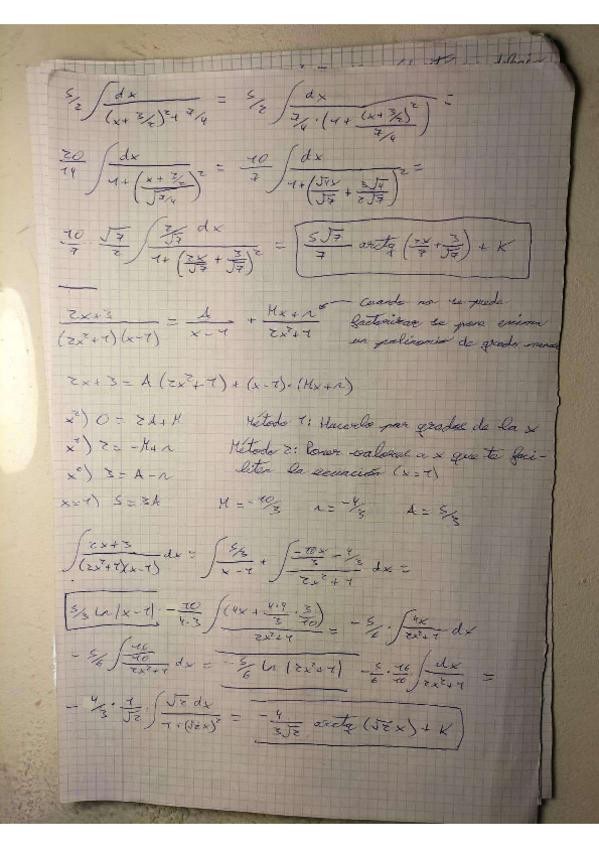 5/2 ∫ dx / ((x+3/2)²+7/4) = 5/2 ∫ dx / (7/4 · (1+ (x+3/2)² / 7/4)) =
20/14 ∫ dx / (1+((x+3/2)/√7/4)²) = 10/7 ∫ dx / (1+(√4x/√7 + 3√4/2√7)²) =
10/7 · √7/2 ∫ 2/√7 dx / (1+(2x/√7 + 3/√7)²) = 5√7/7 arctg (2x/7 + 3/√7) + K
(2x+3) / ((2x²+1)(x-1)) = A/(x-1) + (Mx+n)/(2x²+1) ← Cuando no se puede
factorizar se pone encima
un polinomio de grado menor
2x+3 = A(2x²+1)+(x-1)·(Mx+n)
x²) 0 = 2A+M Método 1: Hacerlo por grados de la x
x¹) 2 = -M+n Método 2: Poner valores a x que te faci-
x⁰) 3 = A-n liten la ecuación (x=1)
x=1) 5 = 3A M = -10/3 n = -4/3 A = 5/3
∫ (2x+3) / ((2x²+1)(x-1)) dx = ∫ (5/3)/(x-1) + ∫ (-10x/3 - 4/3) / (2x²+1) dx =
5/3 ln|x-1| - 10/4·3 ∫ (4x + 4·4/3 · 3/10) / (2x²+1) = -5/6 · ∫ 4x/(2x²+1) dx
- 5/6 ∫ (16/10)/(2x²+1) dx = -5/6 ln|2x²+1| - 5/6 · 16/10 · ∫ dx/(2x²+1) =
- 4/3 · 1/√2 · ∫ √2 dx / (1+(√2x)²) = -4/3√2 arctg (√2 x) + K